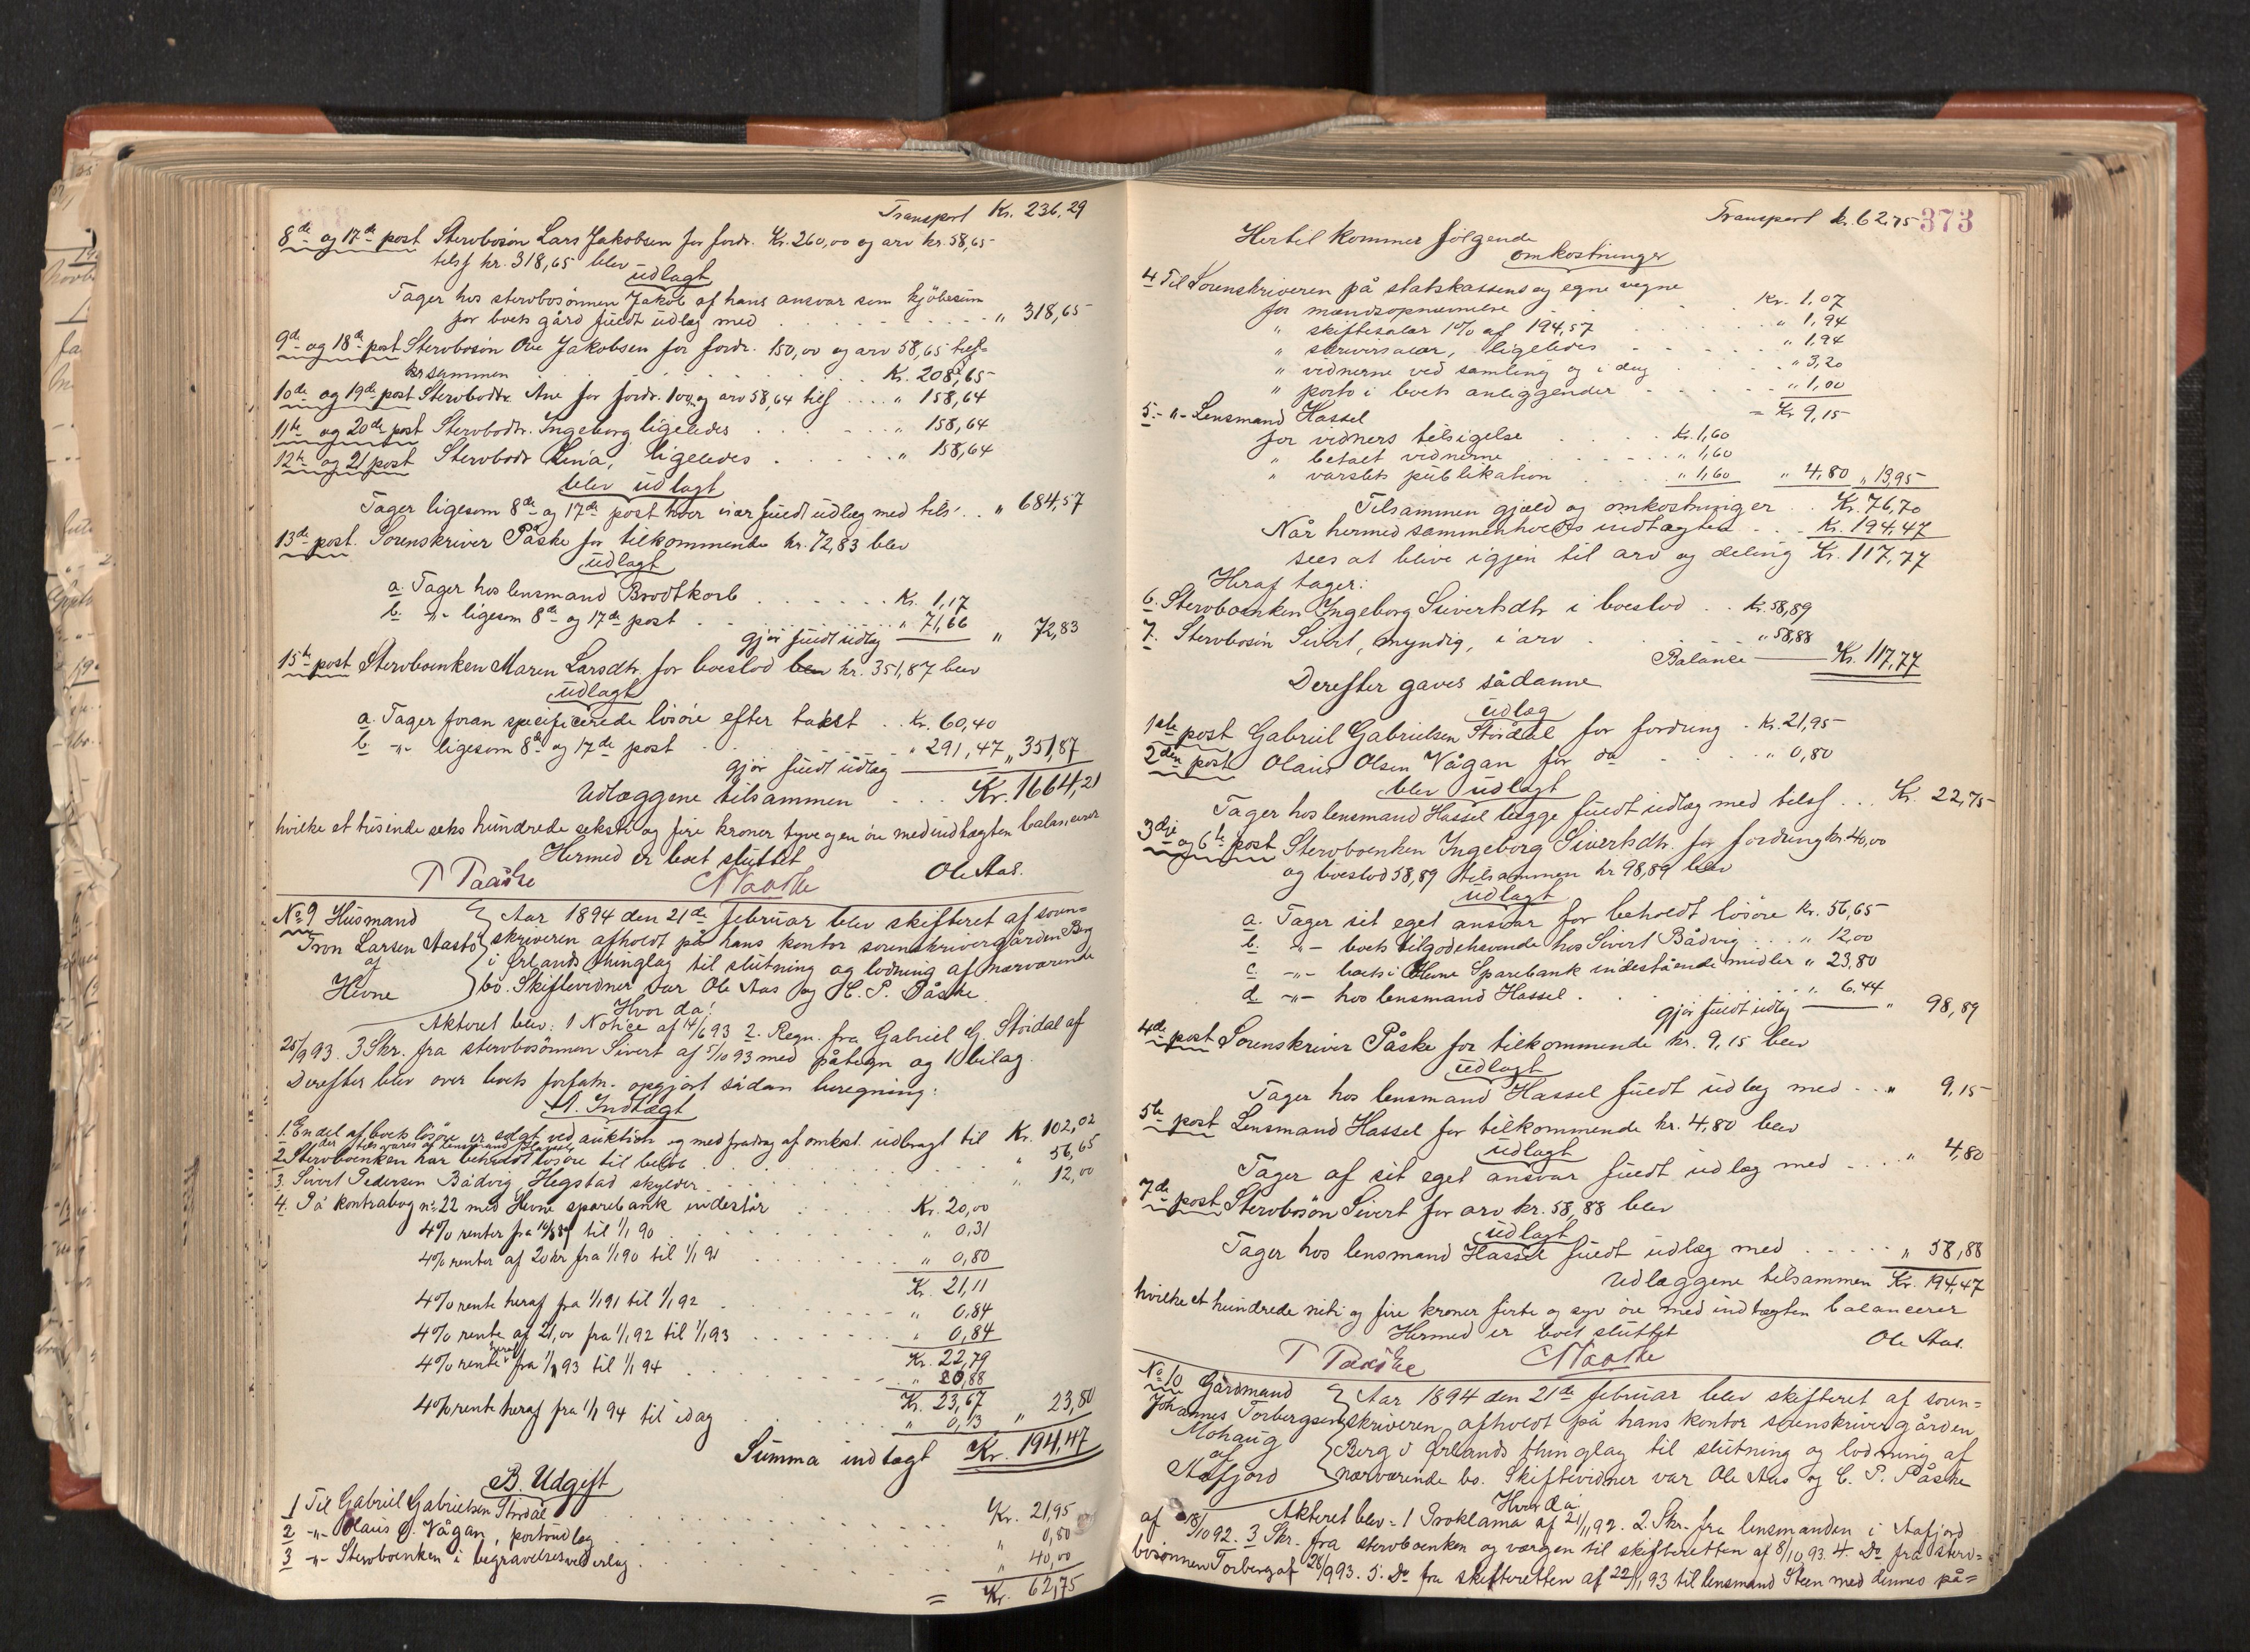 Transport Kr. 236,29
8de og 17de post Stervbosøn Lars Jakobsen for fordr. Kr. 260,00 og arv kr. 58,65
tils kr. 318,65 blev
udlagt
Tager hos stervbosønnen Jakob af hans ansvar som kjøbesum
for boets gård fuldt udlæg med . . . " 318,65
9de og 18de post Stervbosøn Ove Jakobsen for fordr. 150,00 og arv 58,65 tils=
sammen . . . Kr. 208,65
10de og 19de post Stervbodtr. Ane for fordr. 100 og arv 58,64 tils . . . " 158,64
11te og 20de post Stervbodtr. Ingeborg ligeledes . . . " 158,64
12te og 21 post Stervbodtr Lina, ligeledes . . . " 158,64
blev udlagt
Tager ligesom 8de og 17de post hver især fuldt udlæg med tils . . " 684,57
13de post. Sorenskriver Påske for tilkommende kr. 72,83 blev
udlagt
a. Tager hos lensmand Brodtkorb . . . Kr. 1,17
b. -"- ligesom 8de og 17de post . . . " 71,66
gjør fuldt udlæg " 72,83
15te post Stervboenken Maren Larsdtr for boeslod kr. 351,87 blev
udlagt
a. Tager foran specificerede løsøre efter takst . . Kr. 60,40
b. -"- ligesom 8de og 17de post . . . " 291,47 " 351,87
gjør fuldt udlæg
Udlæggene tilsammen . . . Kr. 1664,21
hvilke et tusinde seks hundrede seksti og fire kroner tyve og en øre med indtægten balancerer
Hermed er boet sluttet
T Paaske Ole Aas.
No 9 Husmand
Tron Larsen Aastø
af
Hevne
Aar 1894 den 21de februar blev skifteret af soren=
skriveren afholdt på hans kontor sorenskrivergården Berg
i Ørlands thinglag til slutning og lodning af nærværende
bo. Skiftevidner var Ole Aas og C. P. Påske.
Hvor da:
Akteret blev: 1 Notice af 14/6 93 2. Regn. fra Gabriel G. Stördal af
25/9 93. 3 Skr. fra stervbosønnen Sivert af 5/10 93 med påtegn og 10 bilag.
Derefter blev over boets forfatn. opgjort sådan beregning:
A. Indtægt
1. En del af boets løsøre er solgt ved auktion og med fradrag af omkost. udbragt til Kr. 102,02
der tilsvares af lensmand Hassel
2 Stervboenken har beholdt løsøre til beløb . . . " 56,65
3. Sivert Pedersen Bådvig, Hegstad skylder . . . " 12,00
4. På kontrabog no 22 med Hevne sparebank indestår . . . Kr. 20,00
4% renter fra 10/8 89 til 1/1 90 . . . " 0,31
4% renter af 20 kr fra 1/1 90 til 1/1 91 . . . " 0,80
Kr. 21,11
4% rente heraf fra 1/1 91 til 1/1 92 . . . " 0,84
4% rente af 21,00 fra 1/1 92 til 1/1 93 . . . " 0,84
Kr. 22,79
4% rente heraf fra 1/1 93 til 1/1 94 . . . " 0,88
Kr. 23,67
4% rente heraf fra 1/1 94 til idag . . . " 0,13 " 23,80
Summa indtægt Kr. 194,47
B. Udgift
1 Til Gabriel Gabrielsen Stördal . . . Kr. 21,95
2 -"- Olaus O. Vågan, portoudlæg . . . " 0,80
3 -"- Stervboenken i begravelsesvederlag . . . " 40,00
= Kr. 62,75
Transport kr. 62,75 373
Hertil kommer følgende
omkostninger
4 Til Sorenskriveren på statskassens og egne vegne
for mændsopnævnelse . . . Kr. 1,07
" skiftesalær 1% af 194,57 . . . " 1,94
" skriversalær, ligeledes . . . " 1,94
" vidnerne ved samling og i dag . . . " 3,20
" porto i boets anliggender . . . " 1,00
= Kr 9,15
5. -"- Lensmand Hassel
for vidners tilsigelse . . . Kr. 1,60
" betalt vidnerne . . . " 1,60
" varslets publikation . . . " 1,60 " 4,80 " 13,95
Tilsammen gjæld og omkostninger . . Kr. 76,70
Når hermed sammenholdes indtægten . . Kr. 194,47
sees at blive igjen til arv og deling Kr. 117,77
Heraf tager:
6. Stervboenken Ingeborg Sivertsdtr i boeslod . . Kr. 58,89
7. Stervbosøn Sivert, myndig, i arv . . . " 58,88
Balance Kr. 117,77
Derefter gaves sådanne
udlæg
1ste post Gabriel Gabrielsen Stördal for fordring . Kr. 21,95
2den post Olaus Olsen Vågan for do . . . " 0,80
blev udlagt
Tager hos lensmand Hassel begge fuldt udlæg med tils . . . Kr. 22,75
3die og 6te post Stervboenken Ingeborg Sivertsdtr. for fordring kr. 40,00
og boeslod 58,89 tilsammen kr 98,89 blev
udlagt
a. Tager sit eget ansvar for beholdt løsøre Kr. 56,65
b. -"- boets tilgodehavende hos Sivert Bådvig . . . " 12,00
c -"- boets i Hevne Sparebank indestående midler " 23,80
d -"- hos lensmand Hassel . . . " 6,44
gjør fuldt udlæg " 98,89
4de post Sorenskriver Påske for tilkommende kr. 9,15 blev
udlagt
Tager hos lensmand Hassel fuldt udlæg med . . " 9,15
5te post Lensmand Hassel for tilkommende kr. 4,80 blev
udlagt
Tager af sit eget ansvar fuldt udlæg med . . . " 4,80
7de post Stervbosøn Sivert for arv kr. 58,88 blev
udlagt
Tager hos lensmand Hassel fuldt udlæg med . . . " 58,88
Udlæggene tilsammen Kr. 194,47
hvilke et hundrede nitti og fire kroner førti og syv øre med indtægten balancerer
Hermed er boet sluttet
T Paaske Ole Aas.
No 10 Gårdmand
Johannes Torbergsen
Mohaug
af
Aafjord
Aar 1894 den 21de februar blev skifteret af soren=
skriveren afholdt på hans kontor sorenskrivergården
Berg i Ørlands thinglag til slutning og lodning af
nærværende bo. Skiftevidner var Ole Aas og C. P. Påske
Hvor da
Akteret blev: 1 Proklama af 21/11 92. 2. Skr. fra lensmanden i Aafjord
af 18/10 92. 3 Skr. fra stervboenken og værgen til skifteretten af 8/10 93. 4. Do fra sterv=
bosønnen Torberg af 28/9 93. 5. Do fra skifteretten af 22/1 93 til lensmand Steen med dennes på=